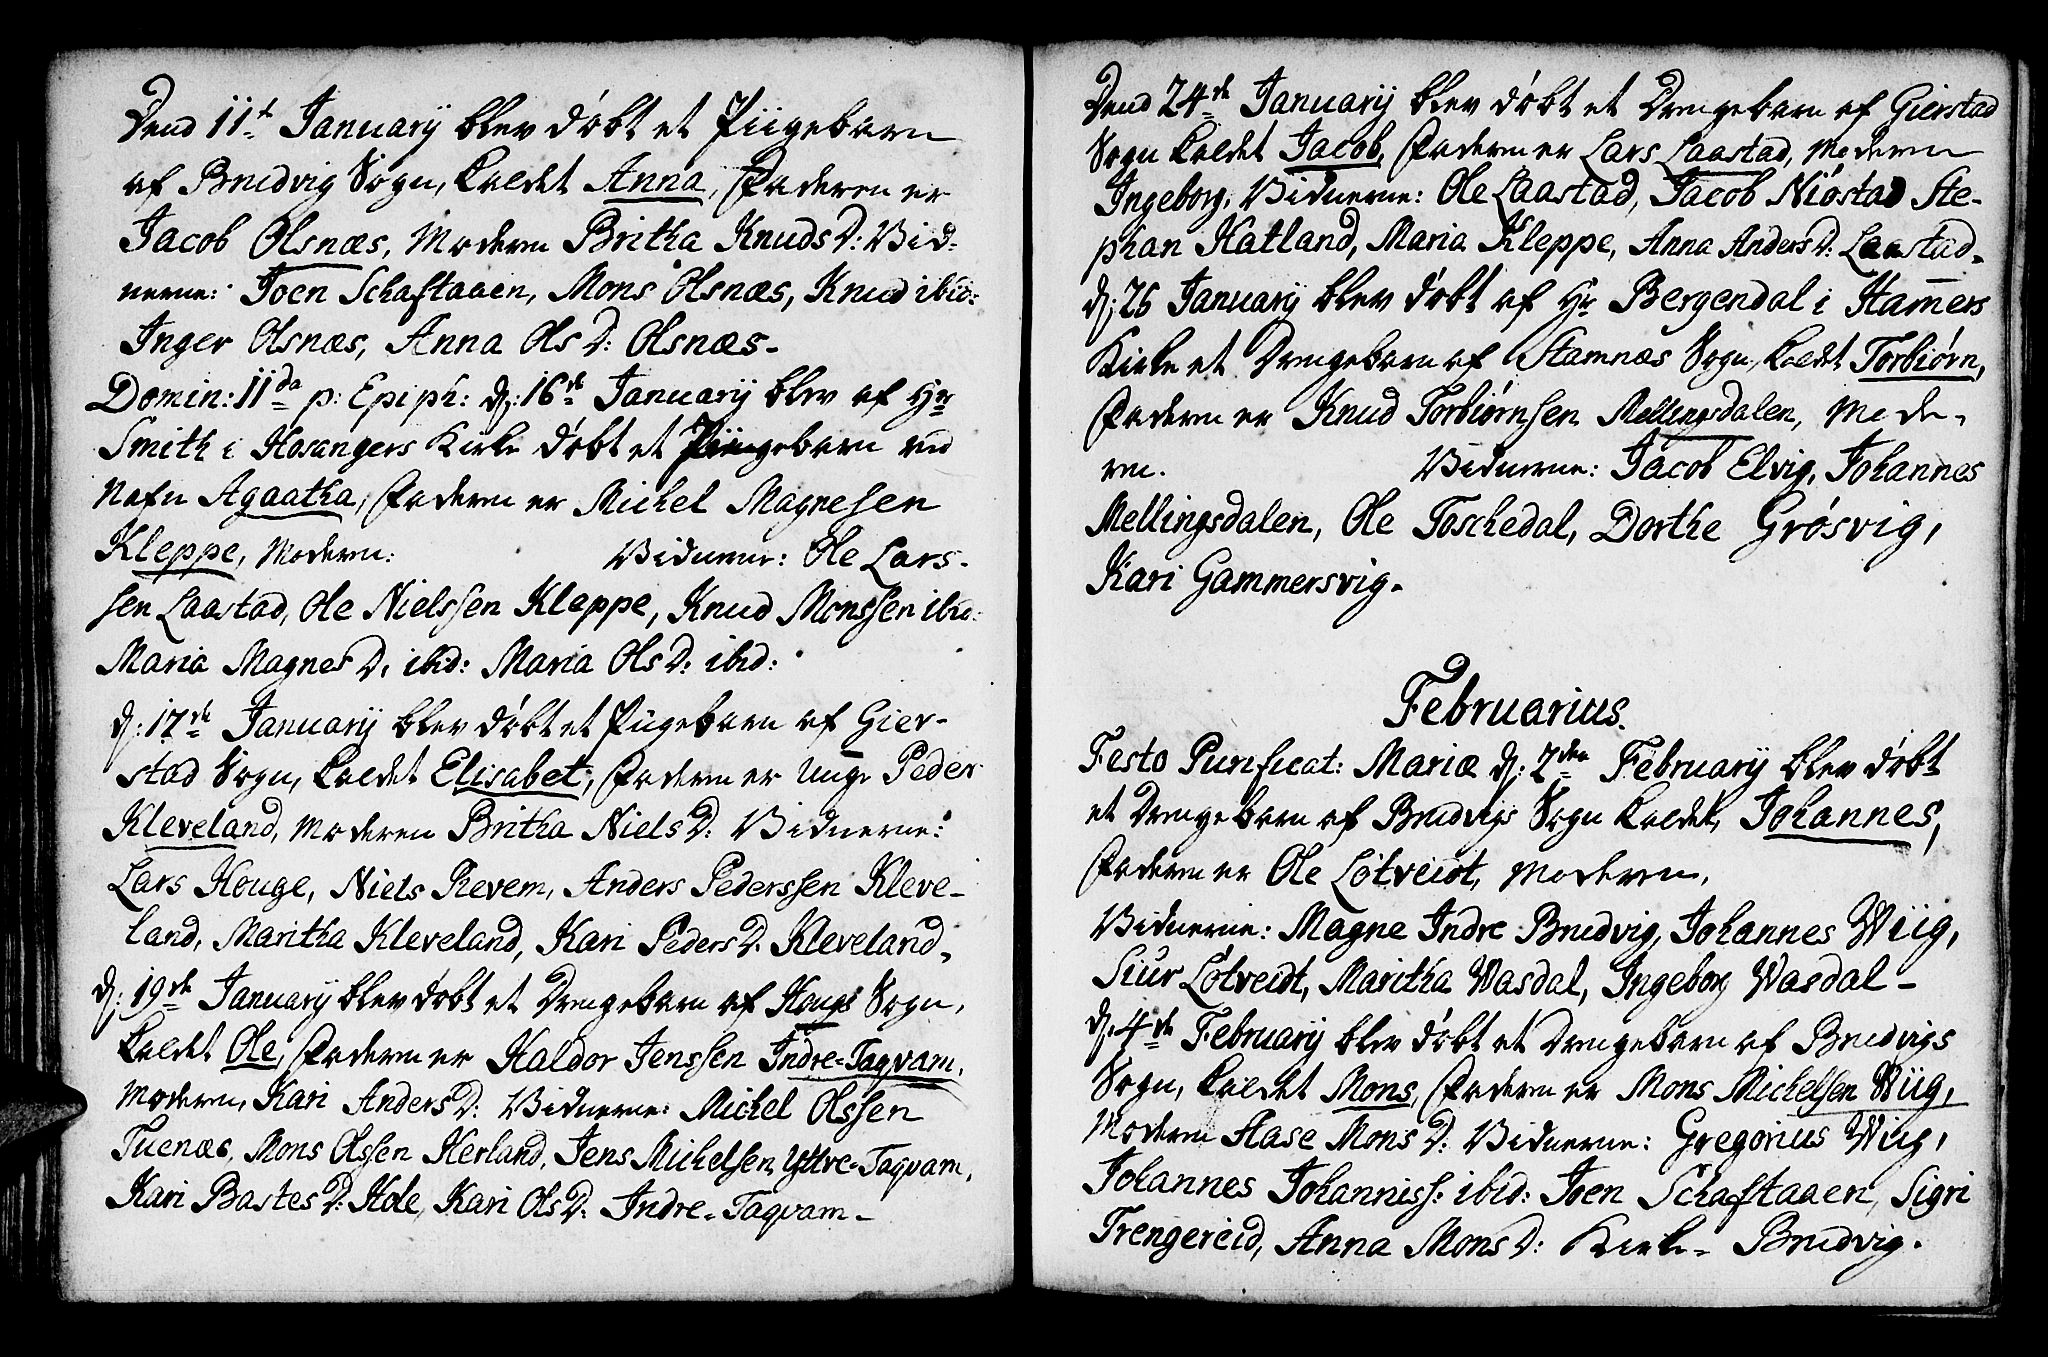 Dend 11t January blev døbt et Piigebarn
af Bruvig Sogn, kaldet Anna, Faderen er
Jacob Olsnæs, Moderen Britha Knuds D: Vid-
nerne: Joen Schaftaaen, Mons Olsnæs, Knud ibid:
Inger Olsnæs, Anna Ols D: Olsnæs.
Domin: IIda p: Epiph: d: 16de January blev af Hr
Smith i Hosangers Kirke døbt et Piigebarn ved
Nafn Agaatha, Faderen er Michel Magnesen
Kleppe, Moderen: Vidnerne: Ole Lars-
sen Laastad, Ole Nielssen Kleppe, Knud Monssen ibid:
Maria Magnes D. ibid: Maria Ols D: ibid:
d: 17de January blev døbt et Piigebarn af Gier-
stad Sogn, kaldet Elisabet, Faderen er unge Peder
Kleveland, Moderen Britha Niels D: Vidnerne:
Lars Houge, Niels Revem, Anders Pederssen Kleve-
land, Maritha Kleveland, Kari Peders D. Kleveland.
d: 19de January blev døbt et Drengebarn af Hougs Sogn,
kaldet Ole, Faderen er Haldor Jenssen Indre-Taqvam,
Moderen, Kari Anders D: Vidnerne: Michel Olssen
Tuenæs, Mons Olssen Herland, Jens Michelsen Yttre-Taqvam,
Kari Bastes D: Hole, Kari Ols D: Indre-Taqvam.
Dend 24de January blev døbt et Drengebarn af Gierstad
Sogn kaldet Jacob, Faderen er Lars Laastad, Moderen
Ingeborg, Vidnerne: Ole Laastad, Jacob Niøstad Ste-
phan Hatland, Maria Kleppe, Anna Anders D: Laastad.
d: 26 January blev døbt af Hr Bergendal i Hamers
Kirke et Drengebarn af Stamnæs Sogn, kaldet Torbiørn,
Faderen er Knud Torbiørnsen Mellingsdalen, Mode-
ren. Vidnerne: Jacob Elvig, Johannes
Mellingsdalen, Ole Toschedal, Dorthe Grøsvig,
Kari Gammersvig.
Februarius.
Festo Purificat: Mariæ d: 2den February blev døbt
et Drengebarn af Bruvigs Sogn kaldet, Johannes,
Faderen er Ole Løtveidt, Moderen,
Vidnerne: Magne Indre Bruvig, Johannes Wiig,
Siur Løtveidt, Maritha Wasdal, Ingeborg Wasdal.
d: 4de February blev døbt et Drengebarn af Bruvigs
Sogn, kaldet Mons, Faderen er Mons Michelsen Wiig,
Moderen Aase Mons D: Vidnerne: Gregorius Wiig,
Johannes Johanniss: ibid: Joen Schaftaaen, Sigri
Trengereid, Anna Mons D: Kirke-Bruvig.